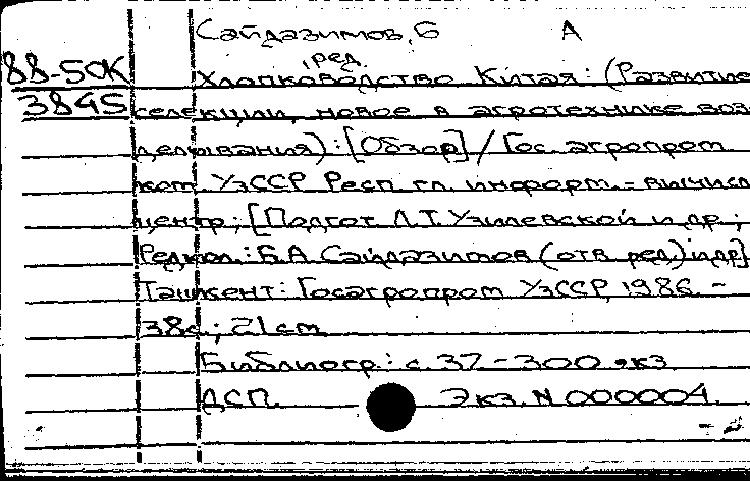 Сайдазимов, Б А
ред.
88-50К Хлопководство Китая: (Развитие
3845 селекции, новое в агротехнике воз
делывания): [Обзор] / Гос. агропром
ком. УзССР Респ. гл. информ.- вычисл
центр; [Подгот. Л.Т. Узилевской и др.;
Редкол.: Б.А. Сайдазимов (отв. ред.) и др]
Ташкент: Госагропром УзССР, 1986. -
38с.; 21 см
Библиогр.: с. 37. - 300 экз
ДСП. Экз. N 000004.